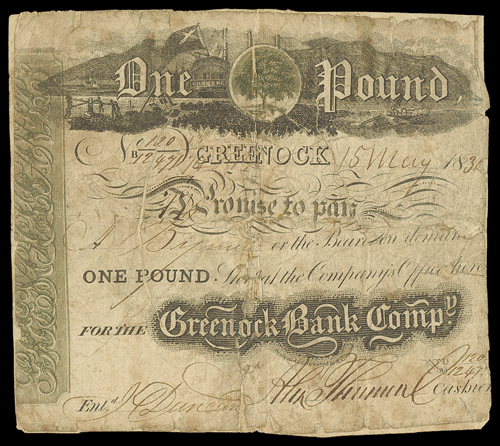 One Pound
COMMERCE
No 120
B 1247 GREENOCK 15 May 183
Promise to pay
or the Bearer on demand
ONE POUND Ster at the Company's Office here
FOR THE Greenock Bank Compy.
No 120
B 1247
Entd J Duncan Cashier